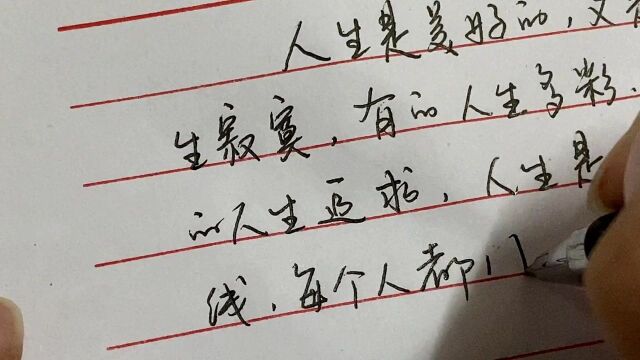 人生是美好的，又有
生寂寞，有的人生多彩.
的人生追求，人生是
线，每个人都